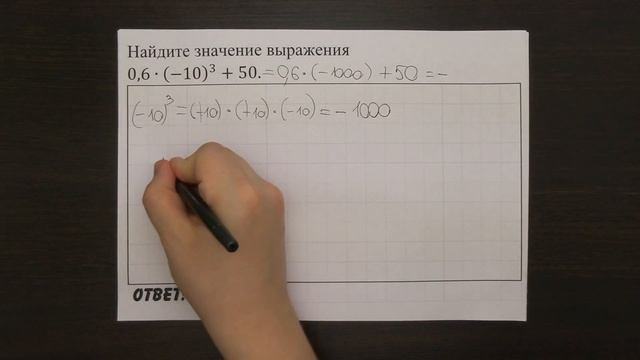 Найдите значение выражения
0,6 · (−10)³ + 50. = 0,6 · (−1000) + 50 = −
(−10)³ = (−10) · (−10) · (−10) = − 1000
ОТВЕТ: